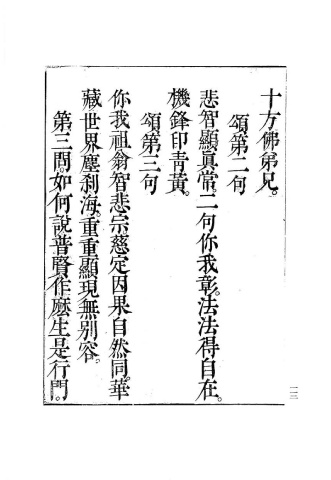 十方佛弟兄。
頌第二句
悲智顯眞常。二句你我彰。法法得自在。
機鋒印靑黃。
頌第三句
你我祖翁智悲宗慈定因果自然同。華
藏世界塵刹海。重重顯現無別容。
第三問。如何說普賢作麽生是行門。
一三